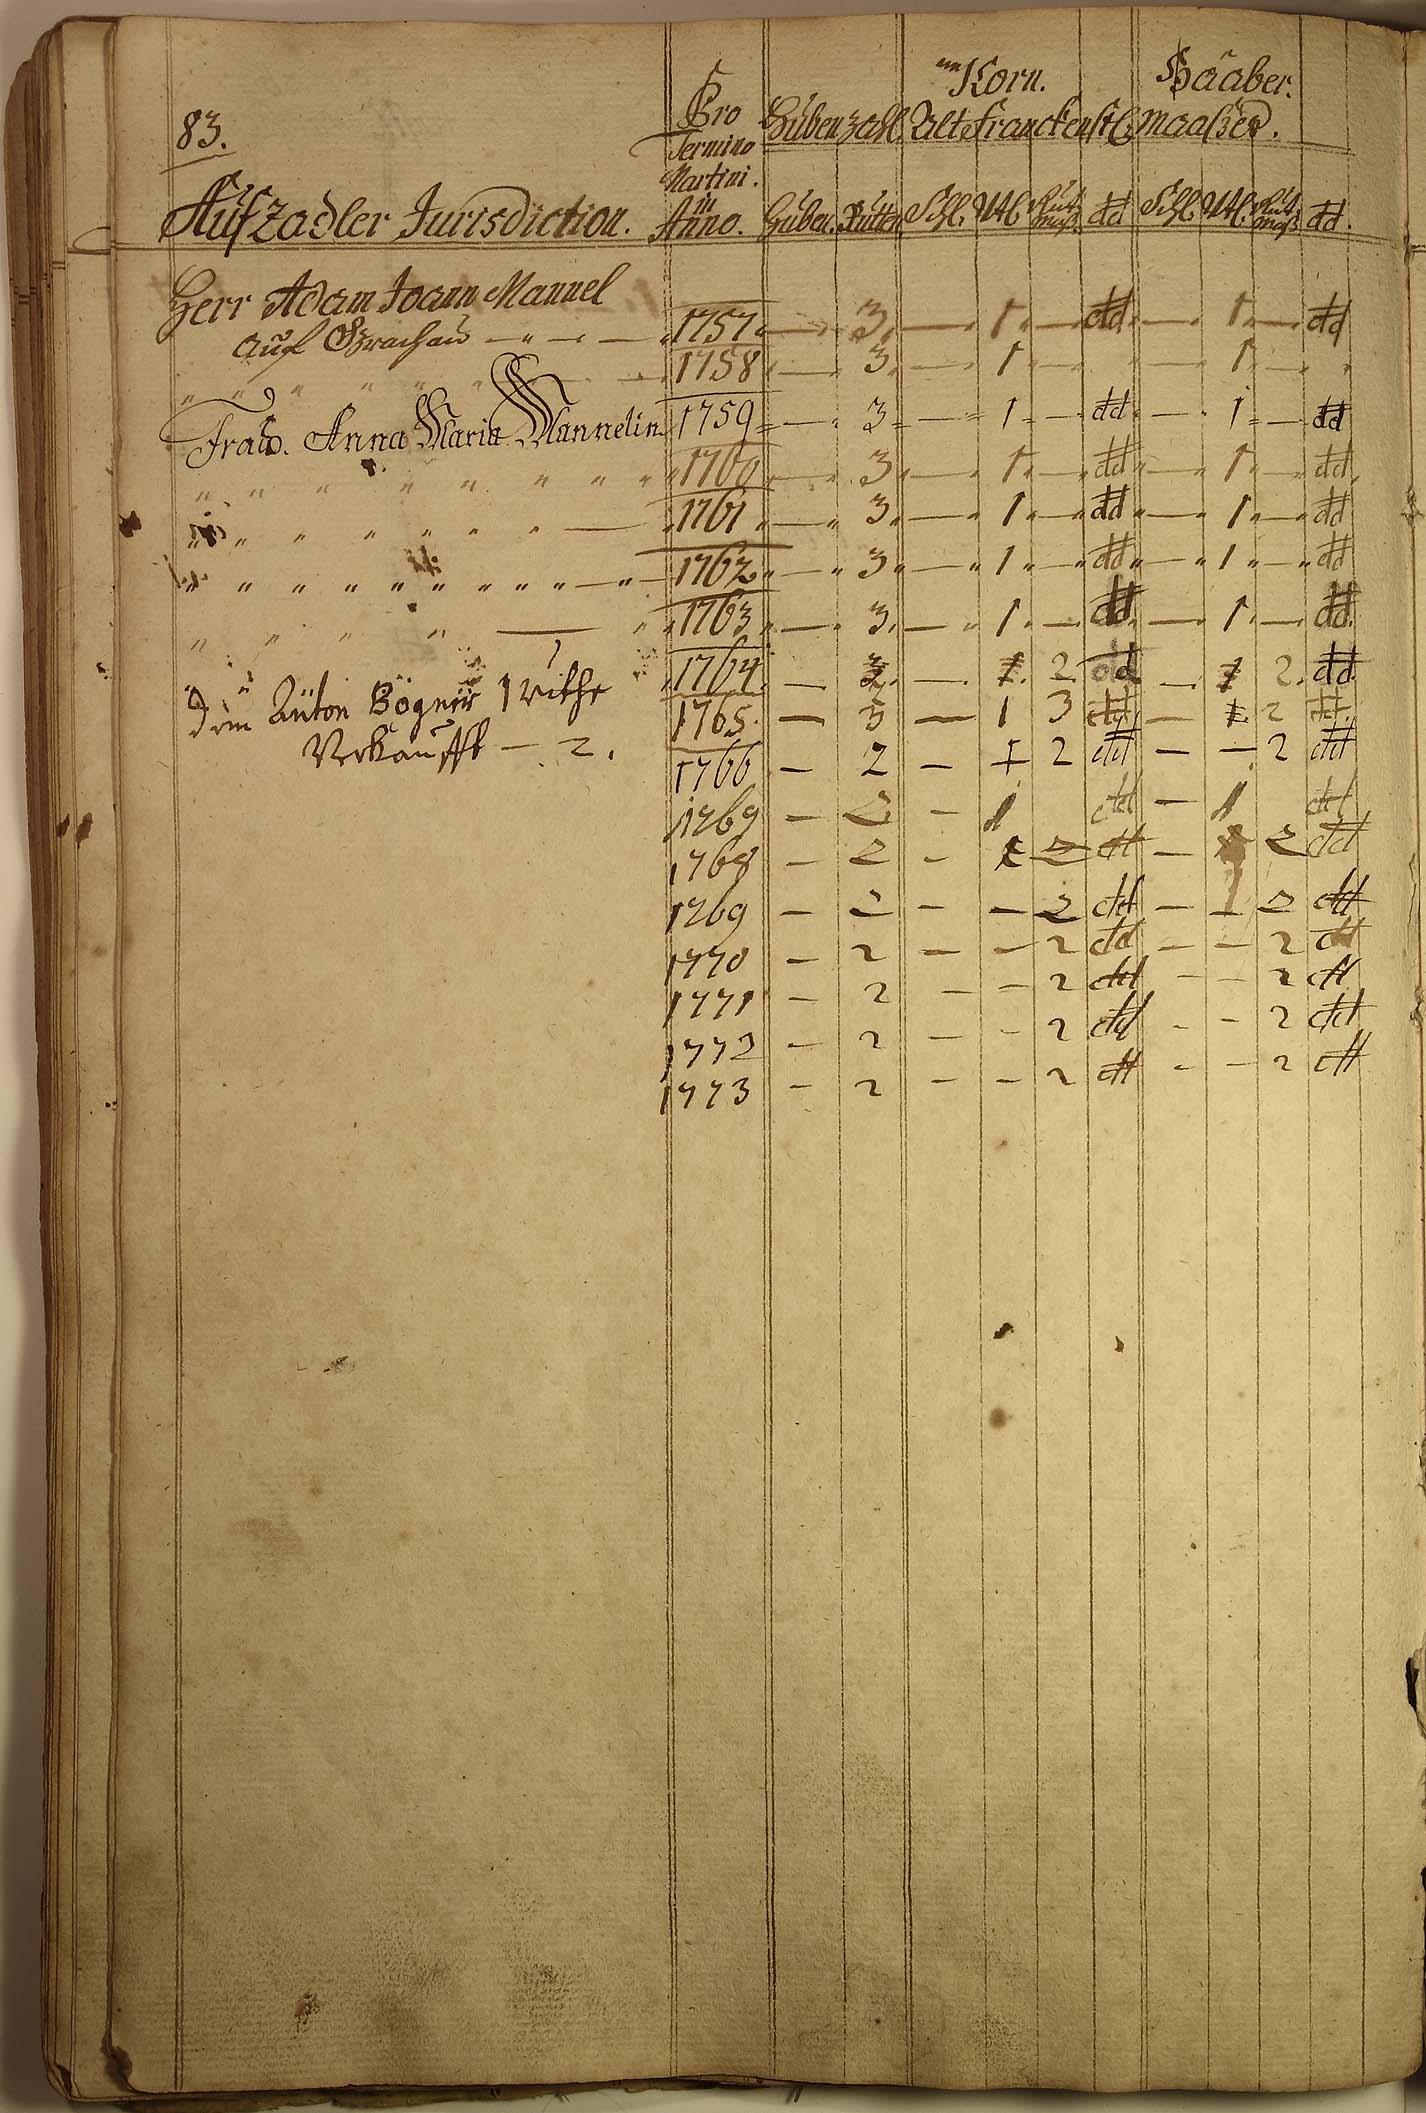 83.
Korn. Haaber.
Pro Huben zahl. Alt Franckenst: Maaßer.
Termino
Martini.
in
Aufzadler Jurisdiction. Anno. Huben. Rutten Schl. Vtl. dd Schl. Vtl. dd.
Herr Adam Joann Mannel
auf 1757 — 3. — 1. — dd. — 1. — dd
" " " " " " 1758 — 3. — 1. — — 1. —
Frau. Anna Maria Mannelin 1759 — 3 — 1 — dd — 1 — dd
" " " " " " " " 1760 — 3 — 1 — dd — 1 — dd
" " " " " " " — 1761 — 3 — 1 — dd — 1 — dd
" " " " " " " " " " — " — 1762 — 3 — 1 — dd — 1 — dd
" " " " — " 1763 — 3. — 1. — dd — 1. — dd.
" " 1764 — 3. — 1. 2. dd — 1 2. dd.
Dem Anton Bögner 1 Ruthe 1765 — 3 — 1 3 dd — 1 2 dd
Verkaufft — 2. 1766 — 2 — 1 2 dd — — 2 dd
1769 — 2 — 1 dd — 1 dd
1768 — 2 — 1 2 dd — 2 dd
1769 — 2 — — 2 dd — — 2 dd
1770 — 2 — — 2 dd — — 2 dd
1771 — 2 — — 2 dd — — 2 dd
1772 — 2 — — 2 dd — — 2 dd
1773 — 2 — — 2 dd — — 2 dd